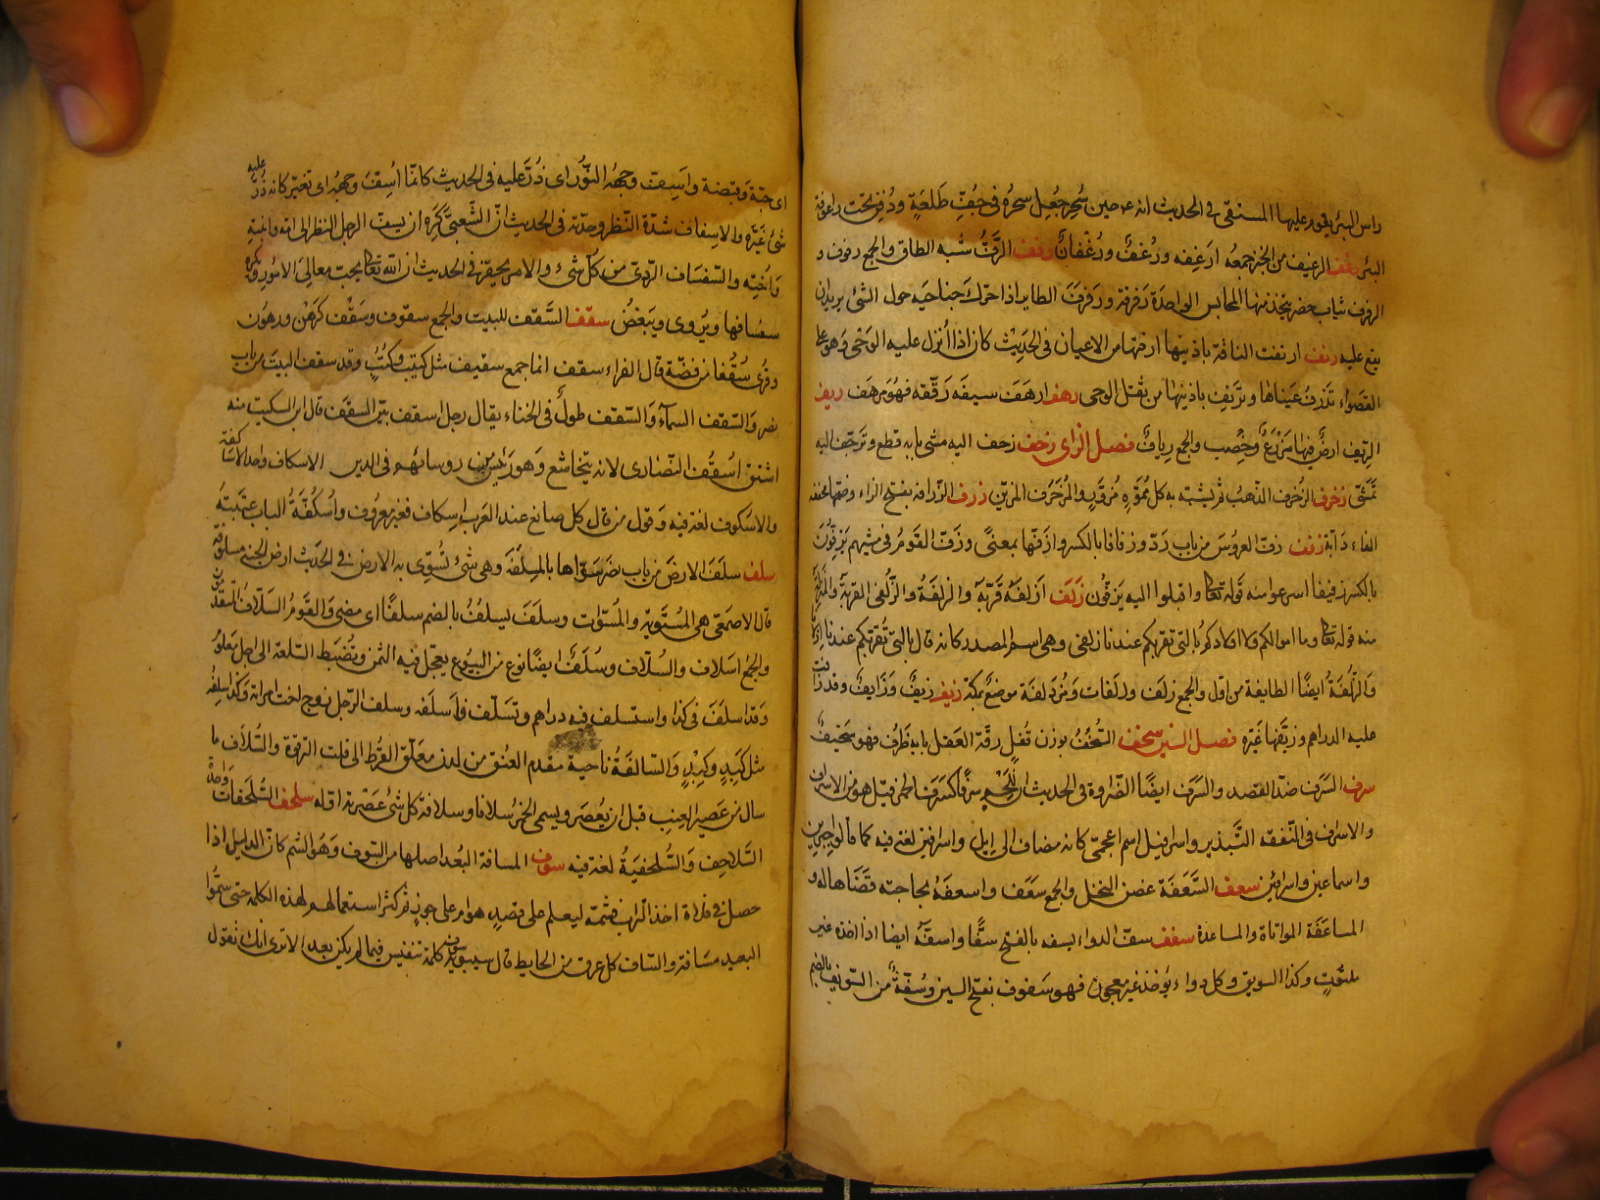 راس البئر يقوم عليها المستقى وفى الحديث انه عم حين سُحِر جُعِل سحرهُ فى جُفِّ طَلعَةٍ ودُفِن تحت راعوفة
البئر رغف الرغيف من الخبز جمعه ارغفه ورُغفٌ ورُغْفانٌ رفف الرَّفُّ شبه الطاق والجمع رفوف و
الرفرف ثياب خضر يتخذ منها المحابس الواحدة رفرفة ورَفرَفَ الطاير اذا حرّك جناحيه حول الشئ يريد ان
يقع عليه رنف ارنفت الناقة باذنيها ارختها من الاعيان فى الحَدِيْث كان اذا اُنزل عليه الوَحى وَهو على
القصواء تذرف عيناها وترنف باذنيها من ثقل الوحى رهف ارهَفَ سيفَه رقّقه فهو مرهَف ريف
الريف ارضٌ فيها زَرْعٌ وخِصب والجمع اريافٌ فصل الزاى زحف زحف اليه مشى بابه قطع وتَزحّف اليه
تَمَشّى زخرف الزُخرف الذهبُ ثم يشبّه به كل مُمَوَّهٍ مُزَوَّرٍ والمُزَخرَف المزيّن زرف الزَّرافة بفتح الزاء وضمّها مخففه
الفاء دآبة زفف زفّ العروسَ من باب رَدّ وزفافا بالكسر وازفّها بمعنىً وزفّ القومُ فى مشيهم يَزِفّونَ
بالكسر زفيفا اسرعوا منه قوله تعالى واقبلوا اليه يزفّون زَلَف اَزلفهُ قَرّبَهُ والزلفَةُ والزُلفى القربة والمنزلة
منه قوله تعالى وما اموالكم ولا اولادكم بالتى تقربكم عندنا زلفى وهى اسم المصدر كانه قال بالتى تُقَرّبكم عندنا ازدلافا
وَالزُلْفَةُ ايضًا الطايفة من اول والجمع زلَف وزلفات وَمُزدَلفة موضعٌ بمكّة زيف زيفٌ وَزَايفٌ وقد زافت
عليه الدراهم وزيّفها غَيْرُه فصل السين سخف السُّخفُ بوزن قُفلٍ رقّة العَقل بابه ظَرُف فهو سَخِيفٌ
سرف السَرَف ضدّ القصد والسَرَف ايضًا الضّراوة وفى الحديث ان لِلّحم سَرَفًا كَسَرَف الخمر وقيل هو من الاسراف
والاسراف فى النّفقة التَّبذير واسرافيل اسم اعجمىّ كانه مضاف الى اِيل واسرافين لغة فيه كما قالوا جبرين
واسماعين واسرائين سعف السَّعَفة غصن النخل والجمع سَعَف واسعفهُ بحاجته قضَاها له و
المساعَفَة المواتاة والمساعدة سفف سفّ الدواء يسفه بالفتح سَفًّا واسفّه ايضا اذا اخذه غير
ملتوتٍ وكذا السويق وكل دواء يؤخذ غير معجون فهو سَفوف بفتح السين وسُفّةٌ من السويق بالضم
اى حبّة وقبضة واُسِفّ وجههُ النَّؤُر اى ذُرّ عليه فى الحديث كانما اُسِفّ وجههُ اى تغيّر كانه ذُرّ عليه
شئ غَيّرهُ والاسفاف شدّة النّظر وحدّته فى الحديث انّ الشَّعبىّ كَرِه ان يسفّ الرجل النظر الى امه وابنته
وَاُخته والسّفساف الرّدئ من كلّ شئ والامر الحقير فى الحديث انّ الله تعالى يحبّ معالى الامور ويكره
سفسافها ويُروى ويبغضُ سقف السَّقف للبيت والجمع سقوف وسُقُف كرَهْن ورهُون
وقرئ سُقُفا من فضّة قال الفراء سقف انما جمع سقيف مثل كثيب وكُثُبٍ وقد سقف البيت من باب
نصر والسّقف السمآء وَالسّقف طولٌ فى انحناء يقال رجل اسقف بيّن السقَف قال ابن السكيت منه
اشتق اسقُفّ النَّصارى لانه يتخاشع وَهو رئيس من روسائهم فى الدين الاسكاف واحد الاساكفة
والاسكوف لغة فيه وقول من قال كل صانع عند العرب اسكاف فغير معروف واُسْكُفَّةُ الباب عتبته
سلف سلَفَ الارضَ من باب نصَر سوّاها بالمِسلَفَة وهى شئ تُسَوّى به الارض وفى الحديث ارض الجنة مسلوفة
قال الاصمعى هى المُستَوِية والمُسَوّاة وسلَفَ يسلُفُ بالضم سلَفًا اى مضى والقَومُ السّلّاف المتقدمون
والجمعُ اسلاف والسُلّاف وسُلَفٌ ايضًا نوع من البيوع يعجّل فيه الثمن وتُضبَط السّلعة الى اجلٍ معلومٍ
وَقد اسلَفَ فى كذا واستسلف منه دراهم وتسَلّف فاَسلَفه وسلف الرّجل زوج اخت امراته وَكذا سِلفُه
مثل كَبِدٍ وكِبْدٍ وَالسّالفَةُ ناحية مقدم العنق من لدن معلّق القرط الى قلت الترقوة والسُّلاف ما
سال من عَصير العِنَب قبل ان يُعصَر ويسمى الخمر سلافا وسلافة كل شئ عَصَرته اوّله سلحف السُّلَحفاة واحدة
السَّلاحِف وَالسُّلَحفِيَةُ لغة فيه سوف المسافة البُعد اصلها من السَوف وَهُو الشم كان الدليل اذا
حصل فى فلاة اخذ التراب فشمّه ليعلم على قصدٍ هوام على جورٍ ثم كثر استعمالهم لهذه الكلمة حتى سَمّوا
البعيد مسَافة والسّاف كل عرق من الحايط قال سيبويه سوف كلمة تنفيس فيما لم يكن بعد الا ترى انك تقول